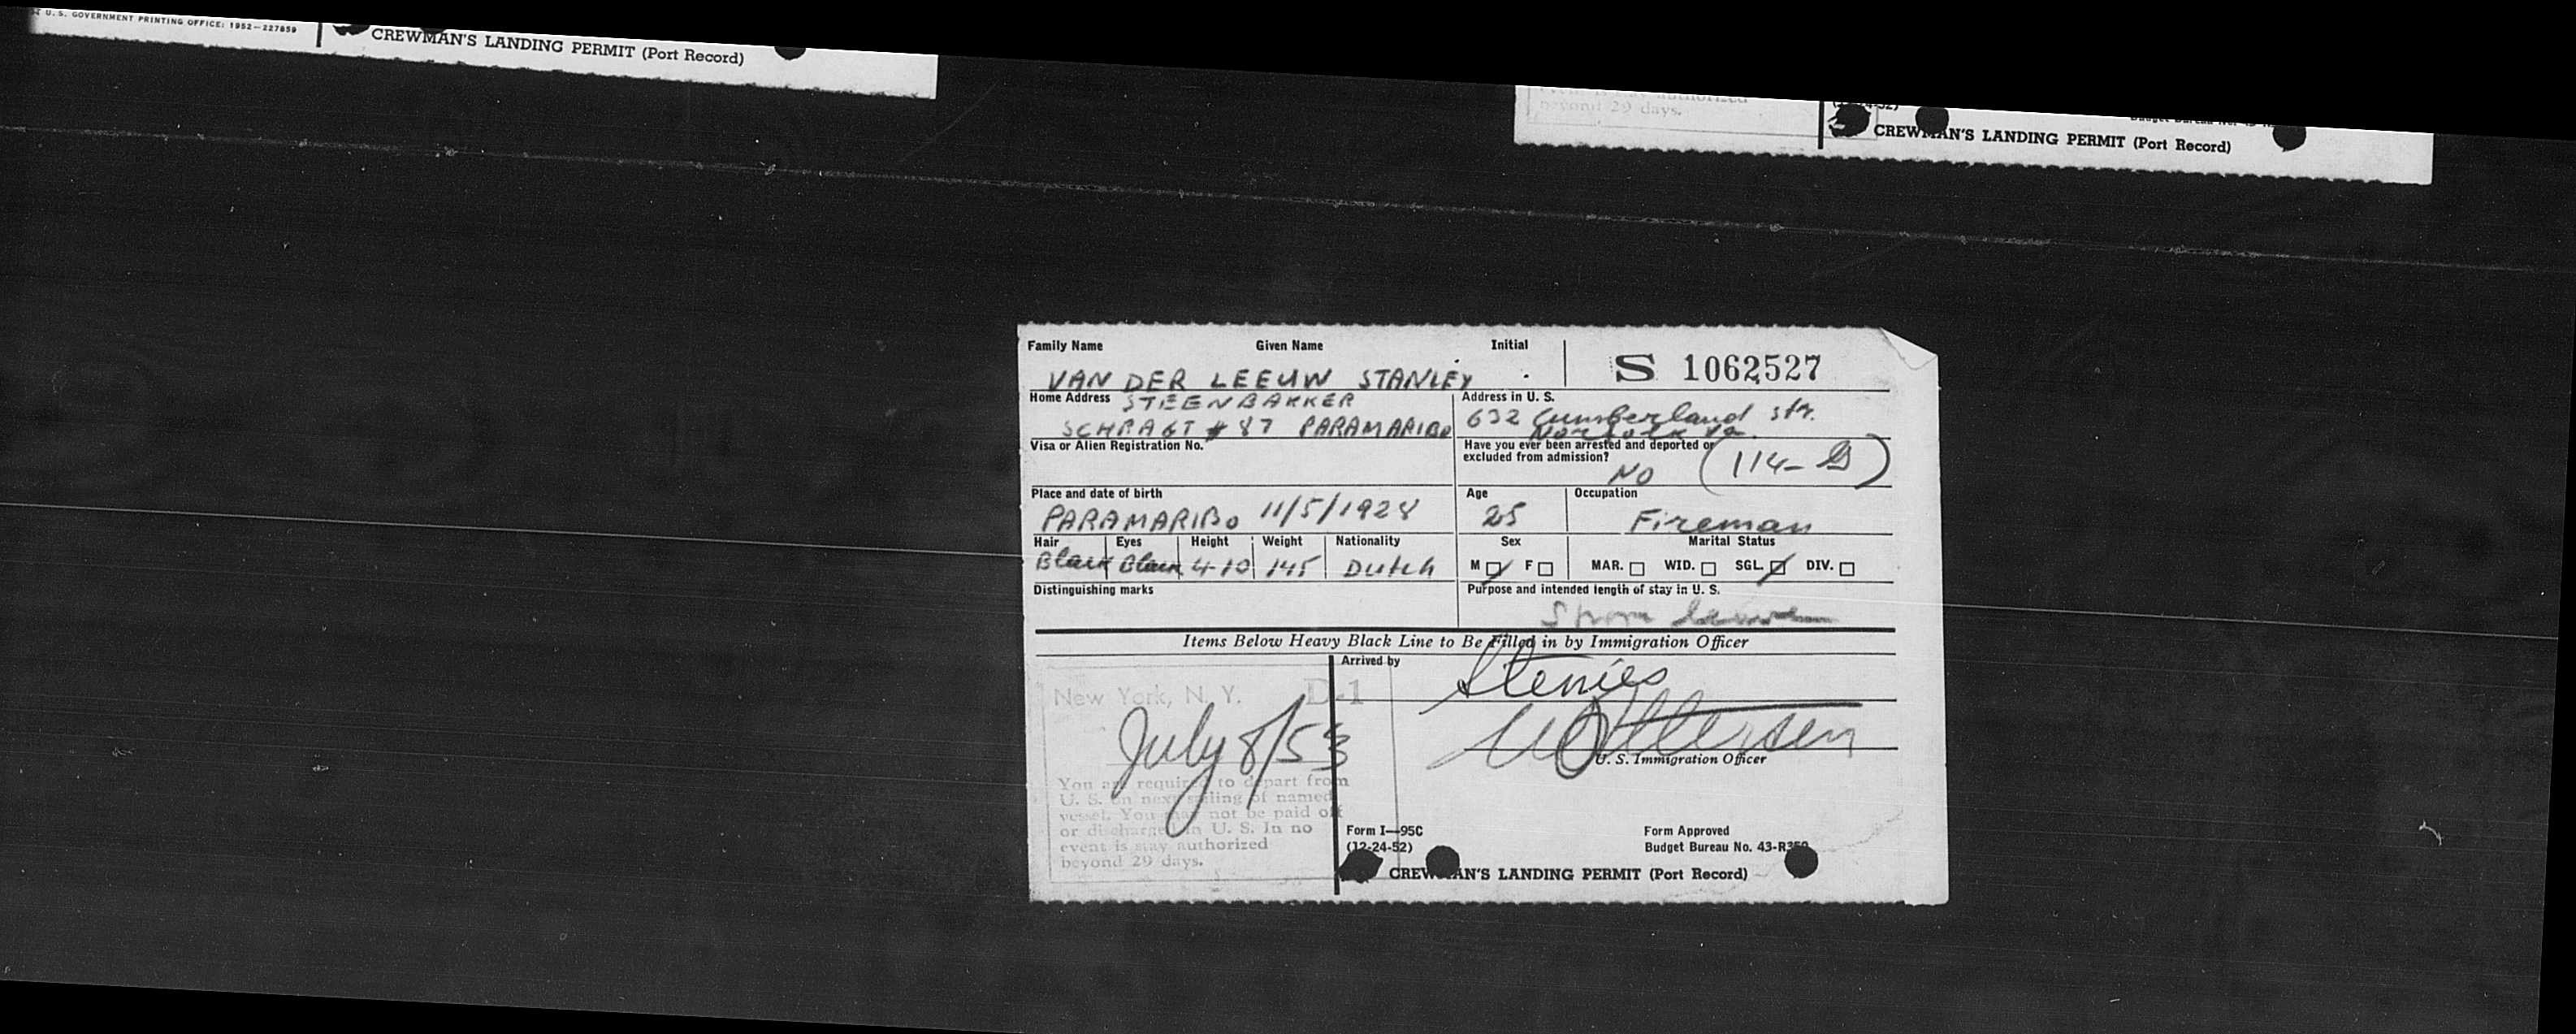 U. S. GOVERNMENT PRINTING OFFICE: 1952—227859
CREWMAN'S LANDING PERMIT (Port Record)
beyond 29 days.
CREWMAN'S LANDING PERMIT (Port Record)
Family Name Given Name Initial
S 1062527
VAN DER LEEUW STANLEY
Home Address STEENBAKKER
SCHRAGT # 87 PARAMARIBO
Address in U. S.
632 Cumberland str.
Norfolk Va.
Visa or Alien Registration No.
Have you ever been arrested and deported or
excluded from admission?
NO (114-B)
Place and date of birth
PARAMARIBO 11/5/1928
Age Occupation
25 Fireman
Hair Eyes Height Weight Nationality
Black Black 4-10 145 Dutch
Sex Marital Status
M F MAR. WID. SGL. DIV.
Distinguishing marks
Purpose and intended length of stay in U. S.
Items Below Heavy Black Line to Be Filled in by Immigration Officer
Arrived by
New York, N. Y. D-1
July 8/53
U. S. Immigration Officer
You are required to depart from
U. S. on next sailing of named
vessel. You may not be paid off
or discharged in U. S. In no
event is stay authorized
beyond 29 days.
Form I—95C
(12-24-52)
Form Approved
Budget Bureau No. 43-R359
CREWMAN'S LANDING PERMIT (Port Record)